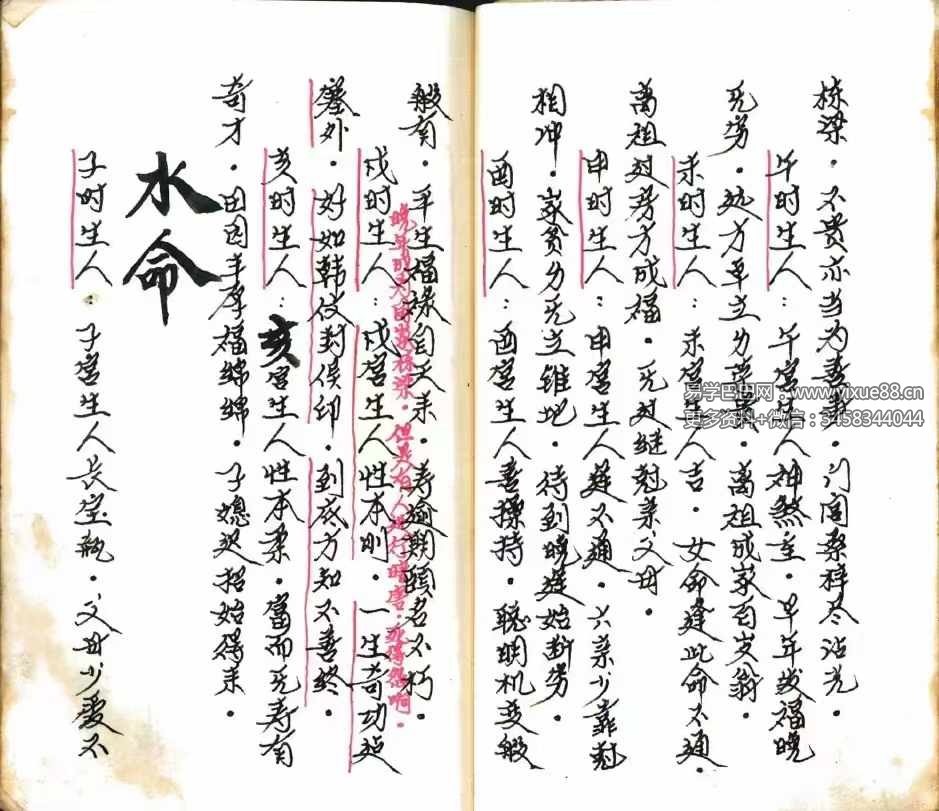 栋梁．不贵亦当为寿彭．门闾桑梓尽沾光．
午时生人：午宫生人神煞重．早年发福晚
无劳．処方卓立多荣果．离祖成家百岁翁．
未时生人：未宫生人吉．女命逢此命不通．
离祖过房方成福．无过继尅亲父母．
申时生人：申宫生人运不通．六亲少靠尅
相冲．家贫多无立锥地．待到晚运始断劳．
酉时生人：酉宫生人喜操持．聪明机变般
般有．平生福禄自天来．寿逾期颐名不朽．
晚年成为国家栋梁．但是有人进行暗害．死得惨啊．
戌时生人：戌宫生人性本刚．一生奇功边
塞外．好如韩伩封侯印．到底方知不善终．
亥时生人：亥宫生人性本柔．富而无寿有
奇才．田园丰厚福绵绵．子媳迟招始得来．
水命
子时生人：子宫生人长室执．父母少爱不
易学巴巴网：www.yixue88.cn
更多资料+微信：3458344044